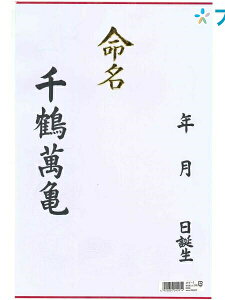 命名
年 月 日誕生
千鶴萬亀